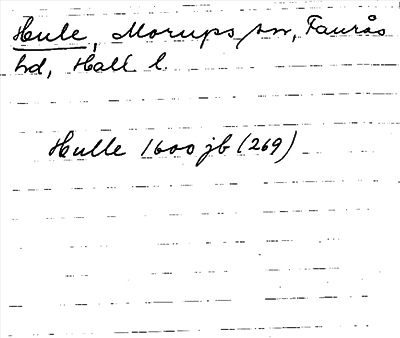 Hule, Morups sn, Faurås
hd, Hall l.
Hulle 1600 jb (269)